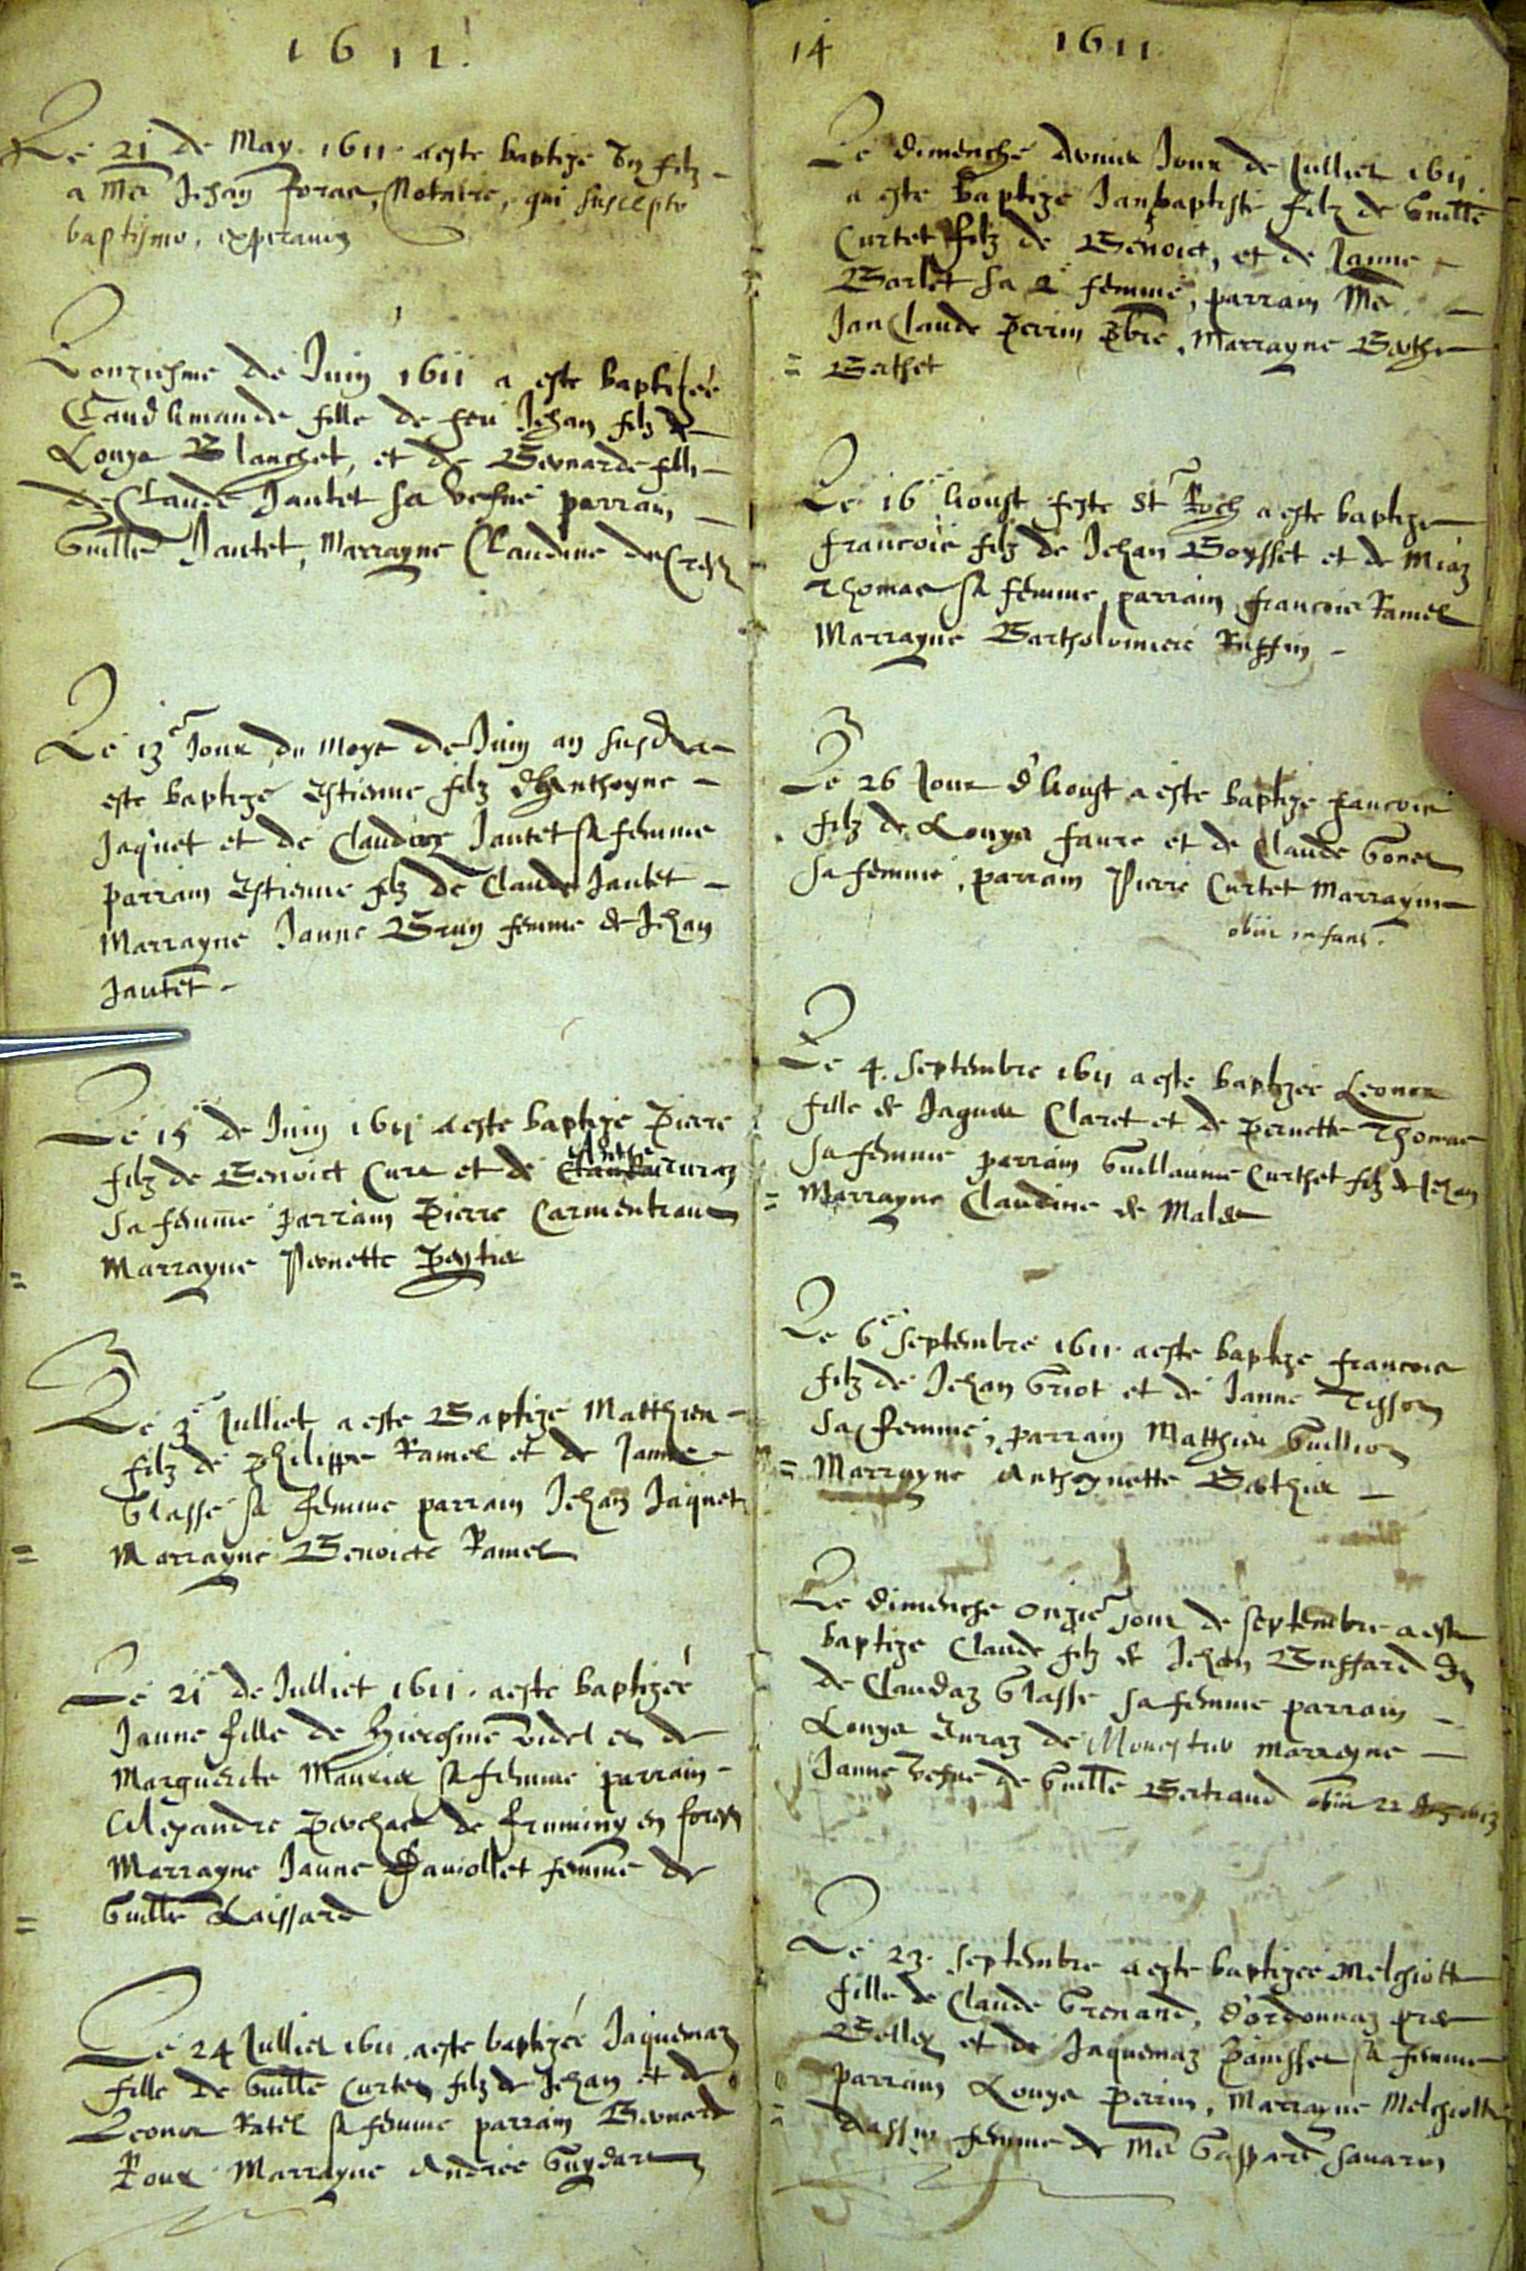 1611.
Le 21 de May. 1611 a este baptize un filz
a Me Jehan foras, Notaire, qui suscepto
baptismo, expiravit
Lonziesme de Juin 1611 a este baptizée
Claud fille de feu Jehan filz de
Louys Blanchet, et de Bernarde fille
de Claude Jantet sa vefve parrain
Guille Jantet, Marrayne Claudine
Le 13e Jour du moys de Juin an susd a
este baptizé Estienne filz d'Anthoyne
Jaquet et de Claudaz Jantet sa femme
parrain Estienne filz de Claude Jantet
Marrayne Janne Brun femme de Jehan
Jantet
Le 15e de Juin 1611 a este baptizé Pierre
filz de Benoict Curt et de Anthe Curaz
sa femme parrain Pierre Carmentran
Marrayne Pernette
Le 3e Julliet a este Baptizé Matthieu
filz de Philippe Ramel et de Janne
Glasse sa femme parrain Jehan Jaquet
Marrayne Benoicte Ramel
Le 21e de Julliet 1611. a este baptizeé
Janne fille de Hierosme Videl et de
Marguerite Maurier sa femme parrain
Alexandre de firminy en forest
Marrayne Janne femme de
Guille Laissard
Le 24 Julliet 1611 a este baptizée Jaquemaz
fille de Guille Curtet filz de Jehan et de
Leonor Ratel sa femme parrain Bernard
Roux Marrayne Andrée
14
1611
Le dimenche dernier Jour de Julliet 1611
a este baptizé Janbaptiste filz de Guille
Curtet filz de Benoict, et de Janne
Borlet sa 2e femme, parrain Me
Jan Claude Perrin pbre, Marrayne Berthe
Berthet
Le 16e Aoust feste St Roch a este baptize
francois filz de Jehan Boysset et de Miaz
Thomas sa femme, parrain francois Ramel
Marrayne Bartholomiere Ruffin
Le 26 Jour d'Aoust a este baptizé francois
filz de Louys faure et de Claude Gonet
sa femme, parrain Pierre Curtet Marrayne
obiit infans.
Le 4. Septembre 1611 a este baptizée Leonor
fille de Jaques Claret et de Pernette Thomas
sa femme parrain Guillaume Curthet filz de Jehan
Marrayne Claudine de
Le 6e Septembre 1611. a este baptizé francois
filz de Jehan Griot et de Janne Tisson
sa femme, parrain Matthieu Guillion
Marrayne Anthoynette Berthier
Le dimenche onzie Jour de septembre a este
baptize Claude filz de Jehan Buffard et
de Claudaz Glasse sa femme parrain
Louys Curaz de marrayne
Janne vefve de Guille Bertrand obiit 22
Le 23. Septembre a este baptizeé Melchiotte
fille de Claude Grenand, d'ordonnaz pres
Belley et de Jaquemaz sa femme
parrain Louys Perrin, Marrayne Melchiotte
dassin femme de Me Gaspard Savarin